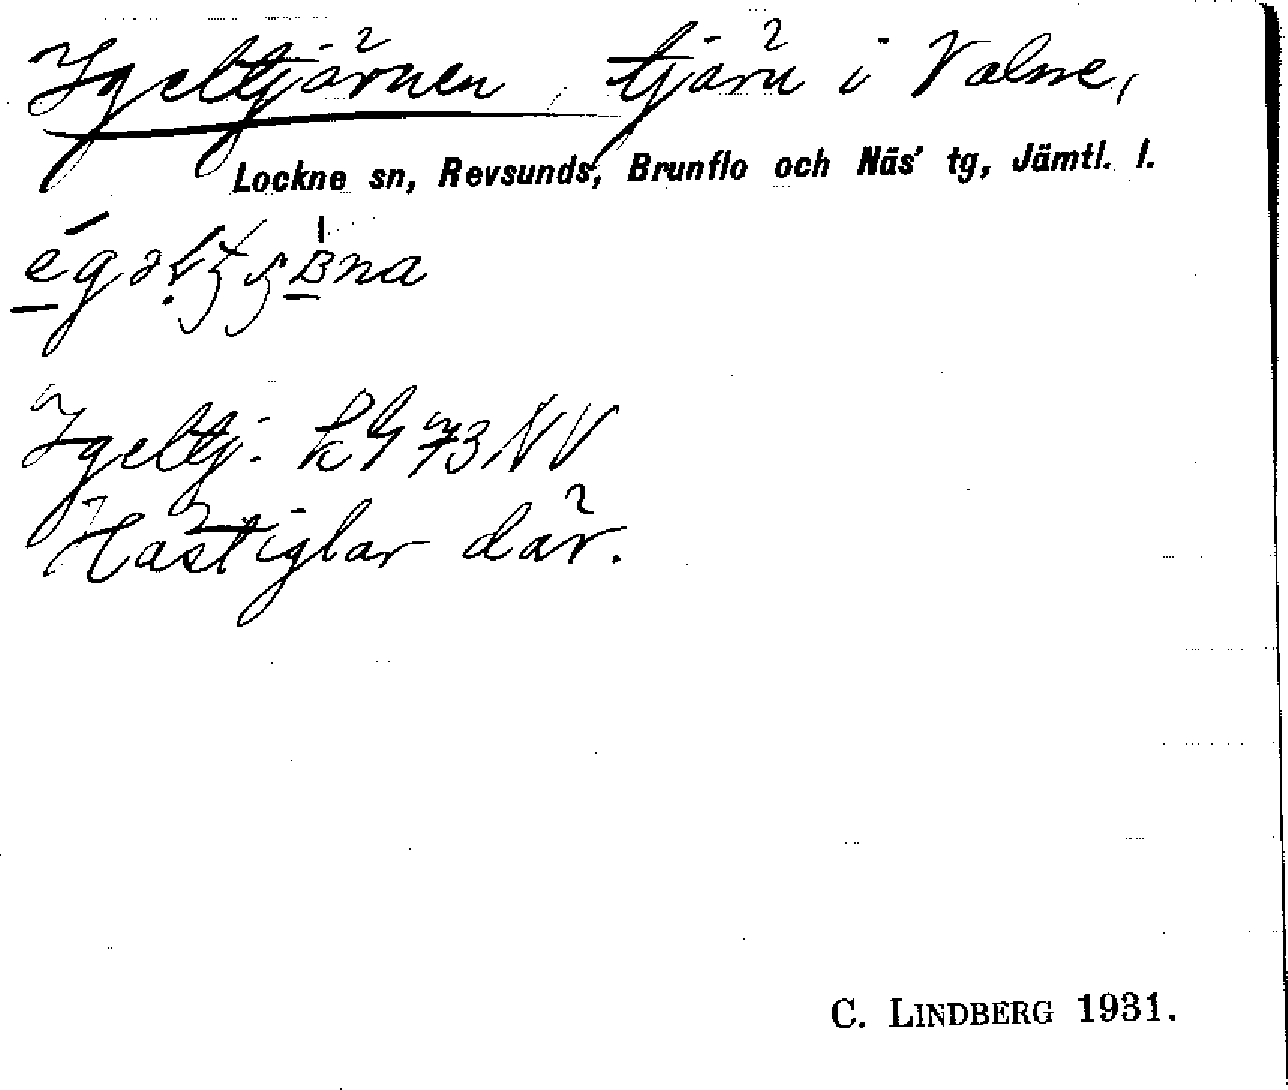 Igeltjärnen, tjärn i Valne,
Lockne sn, Revsunds, Brunflo och Näs' tg, Jämtl. l.
Igeltj. 73 NV
Hästiglar där.
C. LINDBERG 1931.